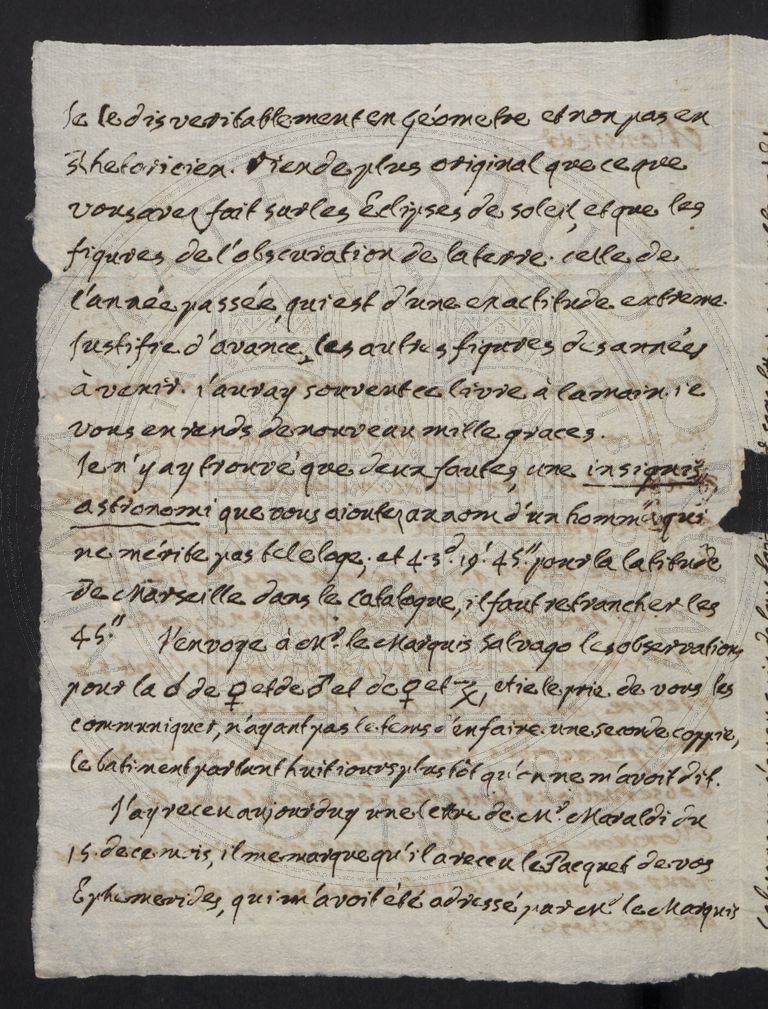 Je le dis veritablement en géometre et non pas en
Rhetoricien. Rien de plus original que ce que
vous avez fait sur les Eclipses de soleil, et que les
figures de l'obscuration de la terre. celle de
l'année passée, qui est d'une exactitude extreme
Justifie d'avance, les autres figures des années
à venir. i'auray souvent ce livre à la main. ie
vous en rends de nouveau mille graces.
Je n'y ay trouvé que deux fautes, une insignis
astronomi que vous aioutez au nom d'un homme qui
ne mérite pas tel eloge, et 43.d 19.' 45." pour la latitude
de Marseille dans le Catalogue, il faut retrancher les
45." J'envoye à Mr. le Marquis Salvago les observations
pour la ☌ de ♀ et de ♂ et de ♀ et ♃, et ie le prie de vous les
communiquer, n'ayant pas le tems d'en faire une seconde coppie,
le batiment partant huit iours plus tôt qu'on ne m'avoit dit.
J'ay receu aujourduy une lettre de Mr. Maraldi du
15. de ce mois, il me marque qu'il a receu le Pacquet de vos
Ephemerides, qui m'avoit été adressé par Mr le Marquis